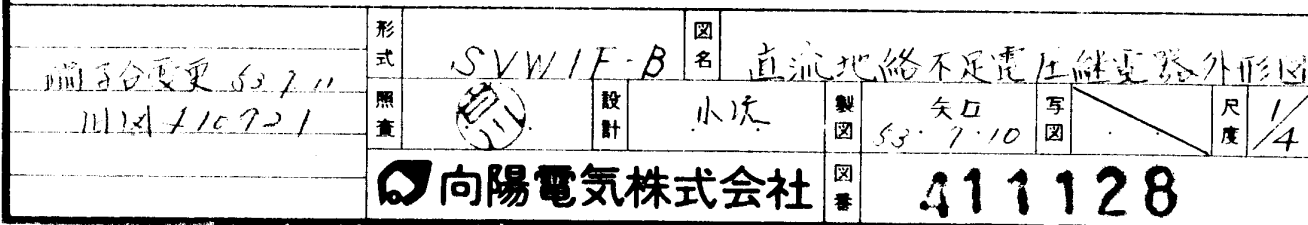 端子台変更 53 7 11
形式 SVW1F-B 図名 直流地絡不足電圧継電器外形図
照査 設計 小沢 製図 矢口 53・7・10 写図 尺度 1/4
向陽電気株式会社 図番 411128